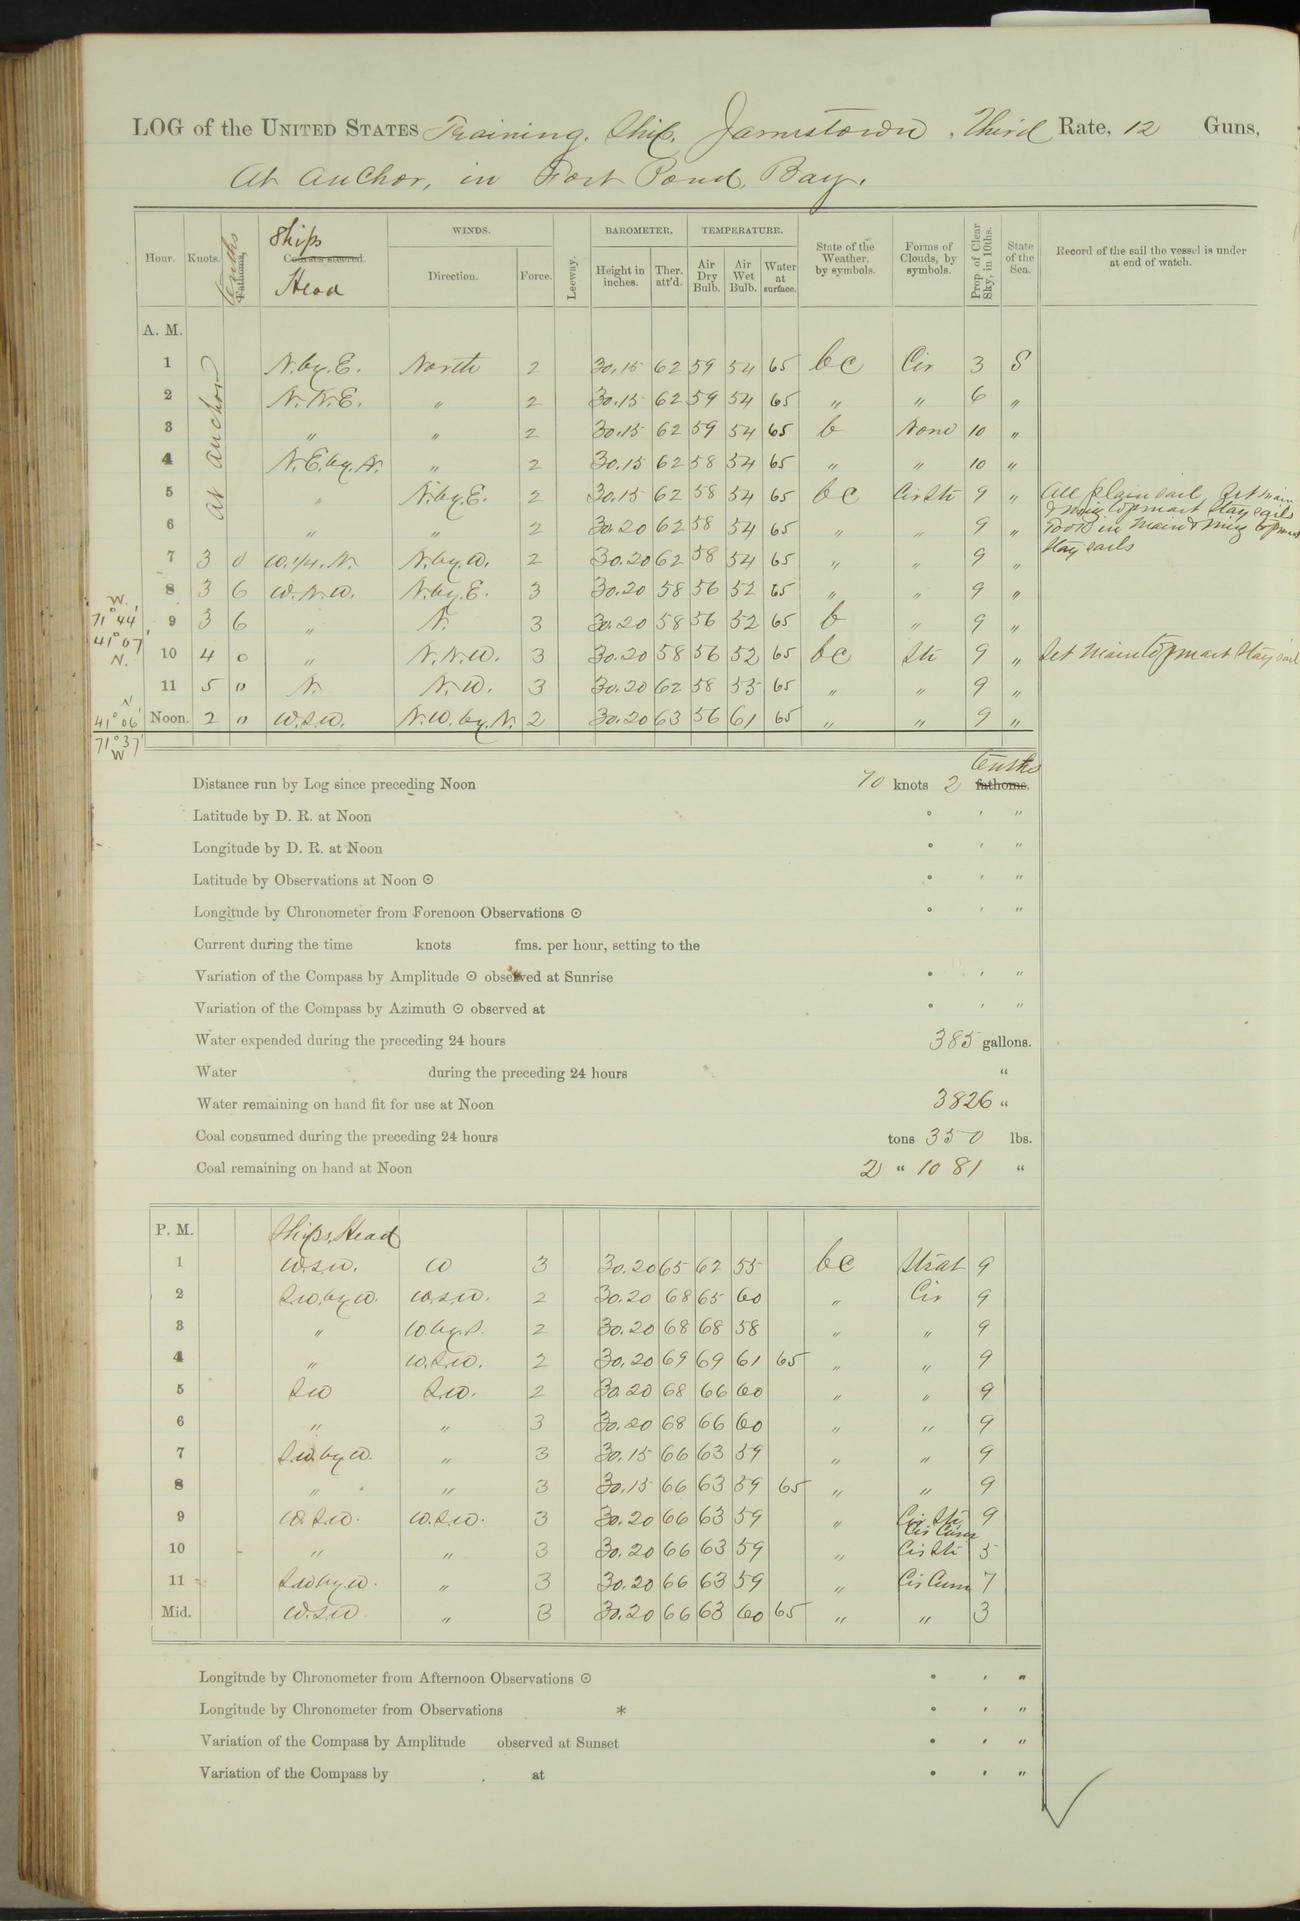 LOG of the UNITED STATES Training Ship Jamestown, Third Rate, 12 Guns,
At Anchor, in Fort Pond Bay.
Hour. Knots. Fathoms. Tenths Courses steered. Ships Head WINDS. Direction. Force. Leeway. BAROMETER. Height in inches. Ther. att'd. TEMPERATURE. Air Dry Bulb. Air Wet Bulb. Water at surface. State of the Weather, by symbols. Forms of Clouds, by symbols. Prop. of Clear Sky, in 10ths. State of the Sea. Record of the sail the vessel is under at end of watch.
A. M.
At Anchor
1 N. by. E. North 2 30.15 62 59 54 65 bc Cir 3 S
2 N. N. E. " 2 30.15 62 59 54 65 " " 6 "
3 " " 2 30.15 62 59 54 65 b None 10 "
4 N. E. by. N. " 2 30.15 62 58 54 65 " " 10 "
5 " N. by. E. 2 30.15 62 58 54 65 bc Cir Str 9 " All plain sail, Set main
& miz. topmast Stay sails
6 " " 2 30.20 62 58 54 65 " " 9 " Took in Main & Miz topmast
Stay sails
7 3 0 W. 1/4. N. N. by. W. 2 30.20 62 58 54 65 " " 9 "
8 3 6 W. N. W. N. by. E. 3 30.20 58 56 52 65 " " 9 "
W. 71° 44'
41° 07' N.
9 3 6 " N. 3 30.20 58 56 52 65 b " 9 "
10 4 0 " N. N. W. 3 30.20 58 56 52 65 bc Str 9 " Set Main topmast Stay sail
11 5 " N. N. W. 3 30.20 62 58 55 65 " " 9 "
N 41° 06'
71° 37' W
Noon. 2 " W. S. W. N. W. by. N. 2 30.20 63 56 61 65 " " 9 "
Distance run by Log since preceding Noon 70 knots 2 fathoms. tenths
Latitude by D. R. at Noon ° ' "
Longitude by D. R. at Noon ° ' "
Latitude by Observations at Noon ☉ ° ' "
Longitude by Chronometer from Forenoon Observations ☉ ° ' "
Current during the time knots fms. per hour, setting to the
Variation of the Compass by Amplitude ☉ observed at Sunrise ° ' "
Variation of the Compass by Azimuth ☉ observed at ° ' "
Water expended during the preceding 24 hours 385 gallons.
Water during the preceding 24 hours "
Water remaining on hand fit for use at Noon 3826 "
Coal consumed during the preceding 24 hours tons 350 lbs.
Coal remaining on hand at Noon 2 " 1081 "
P. M. Ships Head
1 W. S. W. W 3 30.20 65 62 55 bc Strat 9
2 S. W. by W. W. S. W. 2 30.20 68 65 60 " Cir 9
3 " W. by. S. 2 30.20 68 68 58 " " 9
4 " W. S. W. 2 30.20 69 69 61 65 " " 9
5 S W S. W. 2 30.20 68 66 60 " " 9
6 " " 3 30.20 68 66 60 " " 9
7 S. W. by W. " 3 30.15 66 63 59 " " 9
8 " " 3 30.15 66 63 59 65 " " 9
9 W. S. W. W. S. W. 3 30.20 66 63 59 " Cir Str Cir Cum 9
10 " " 3 30.20 66 63 59 " Cir Str 5
11 S. W by. W. " 3 30.20 66 63 59 " Cir Cum 7
Mid. W. S. W " 3 30.20 66 63 60 65 " " 3
Longitude by Chronometer from Afternoon Observations ☉ ° ' "
Longitude by Chronometer from Observations * ° ' "
Variation of the Compass by Amplitude observed at Sunset ° ' "
Variation of the Compass by at ° ' "